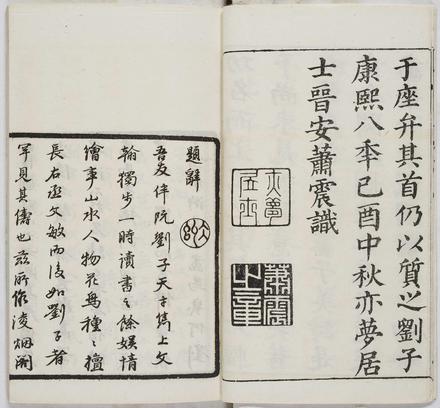 于座弁其首仍以質之劉子
康熙八季己酉中秋亦夢居
士晉安蕭震識
亦夢
居士
蕭震
之章
題辭
吾友伴阮劉子天才雋上文
翰獨步一時讀書之餘娱情
繪事山水人物花鳥種種擅
長右丞文敏而後如劉子者
罕見其儔也茲所作凌烟閣